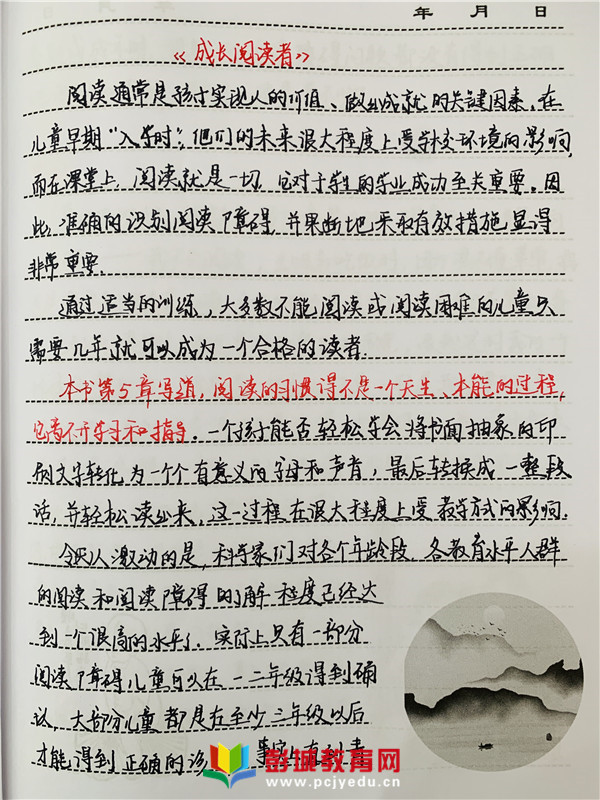 年 月 日
《成长阅读者》
阅读通常是孩子实现人的价值、做出成就的关键因素。在
儿童早期“入学时”，他们的未来很大程度上受学校环境的影响，
而在课堂上，阅读就是一切，它对于学生的学业成功至关重要。因
此，准确的识别阅读障碍，并果断地采取有效措施显得
非常重要。
通过适当的训练，大多数不能阅读或阅读困难的儿童只
需要几年就可以成为一个合格的读者。
本书第5章写道，阅读的习惯得不是一个天生、本能的过程，
它离不开学习和指导。一个孩子能否轻松学会将书面抽象的印
刷文字转化为一个个有意义的字母和声音，最后转换成一整段
话，并轻松读出来，这一过程在很大程度上受教学方式的影响。
令人激动的是，科学家们对各个年龄段、各教育水平人群
的阅读和阅读障碍的了解程度已经达
到一个很高的水平了。实际上只有一部分
阅读障碍儿童可以在一二年级得到确
认，大部分儿童都是在至少三年级以后
才能得到正确的诊
彭城教育网
www.pcjyedu.cn